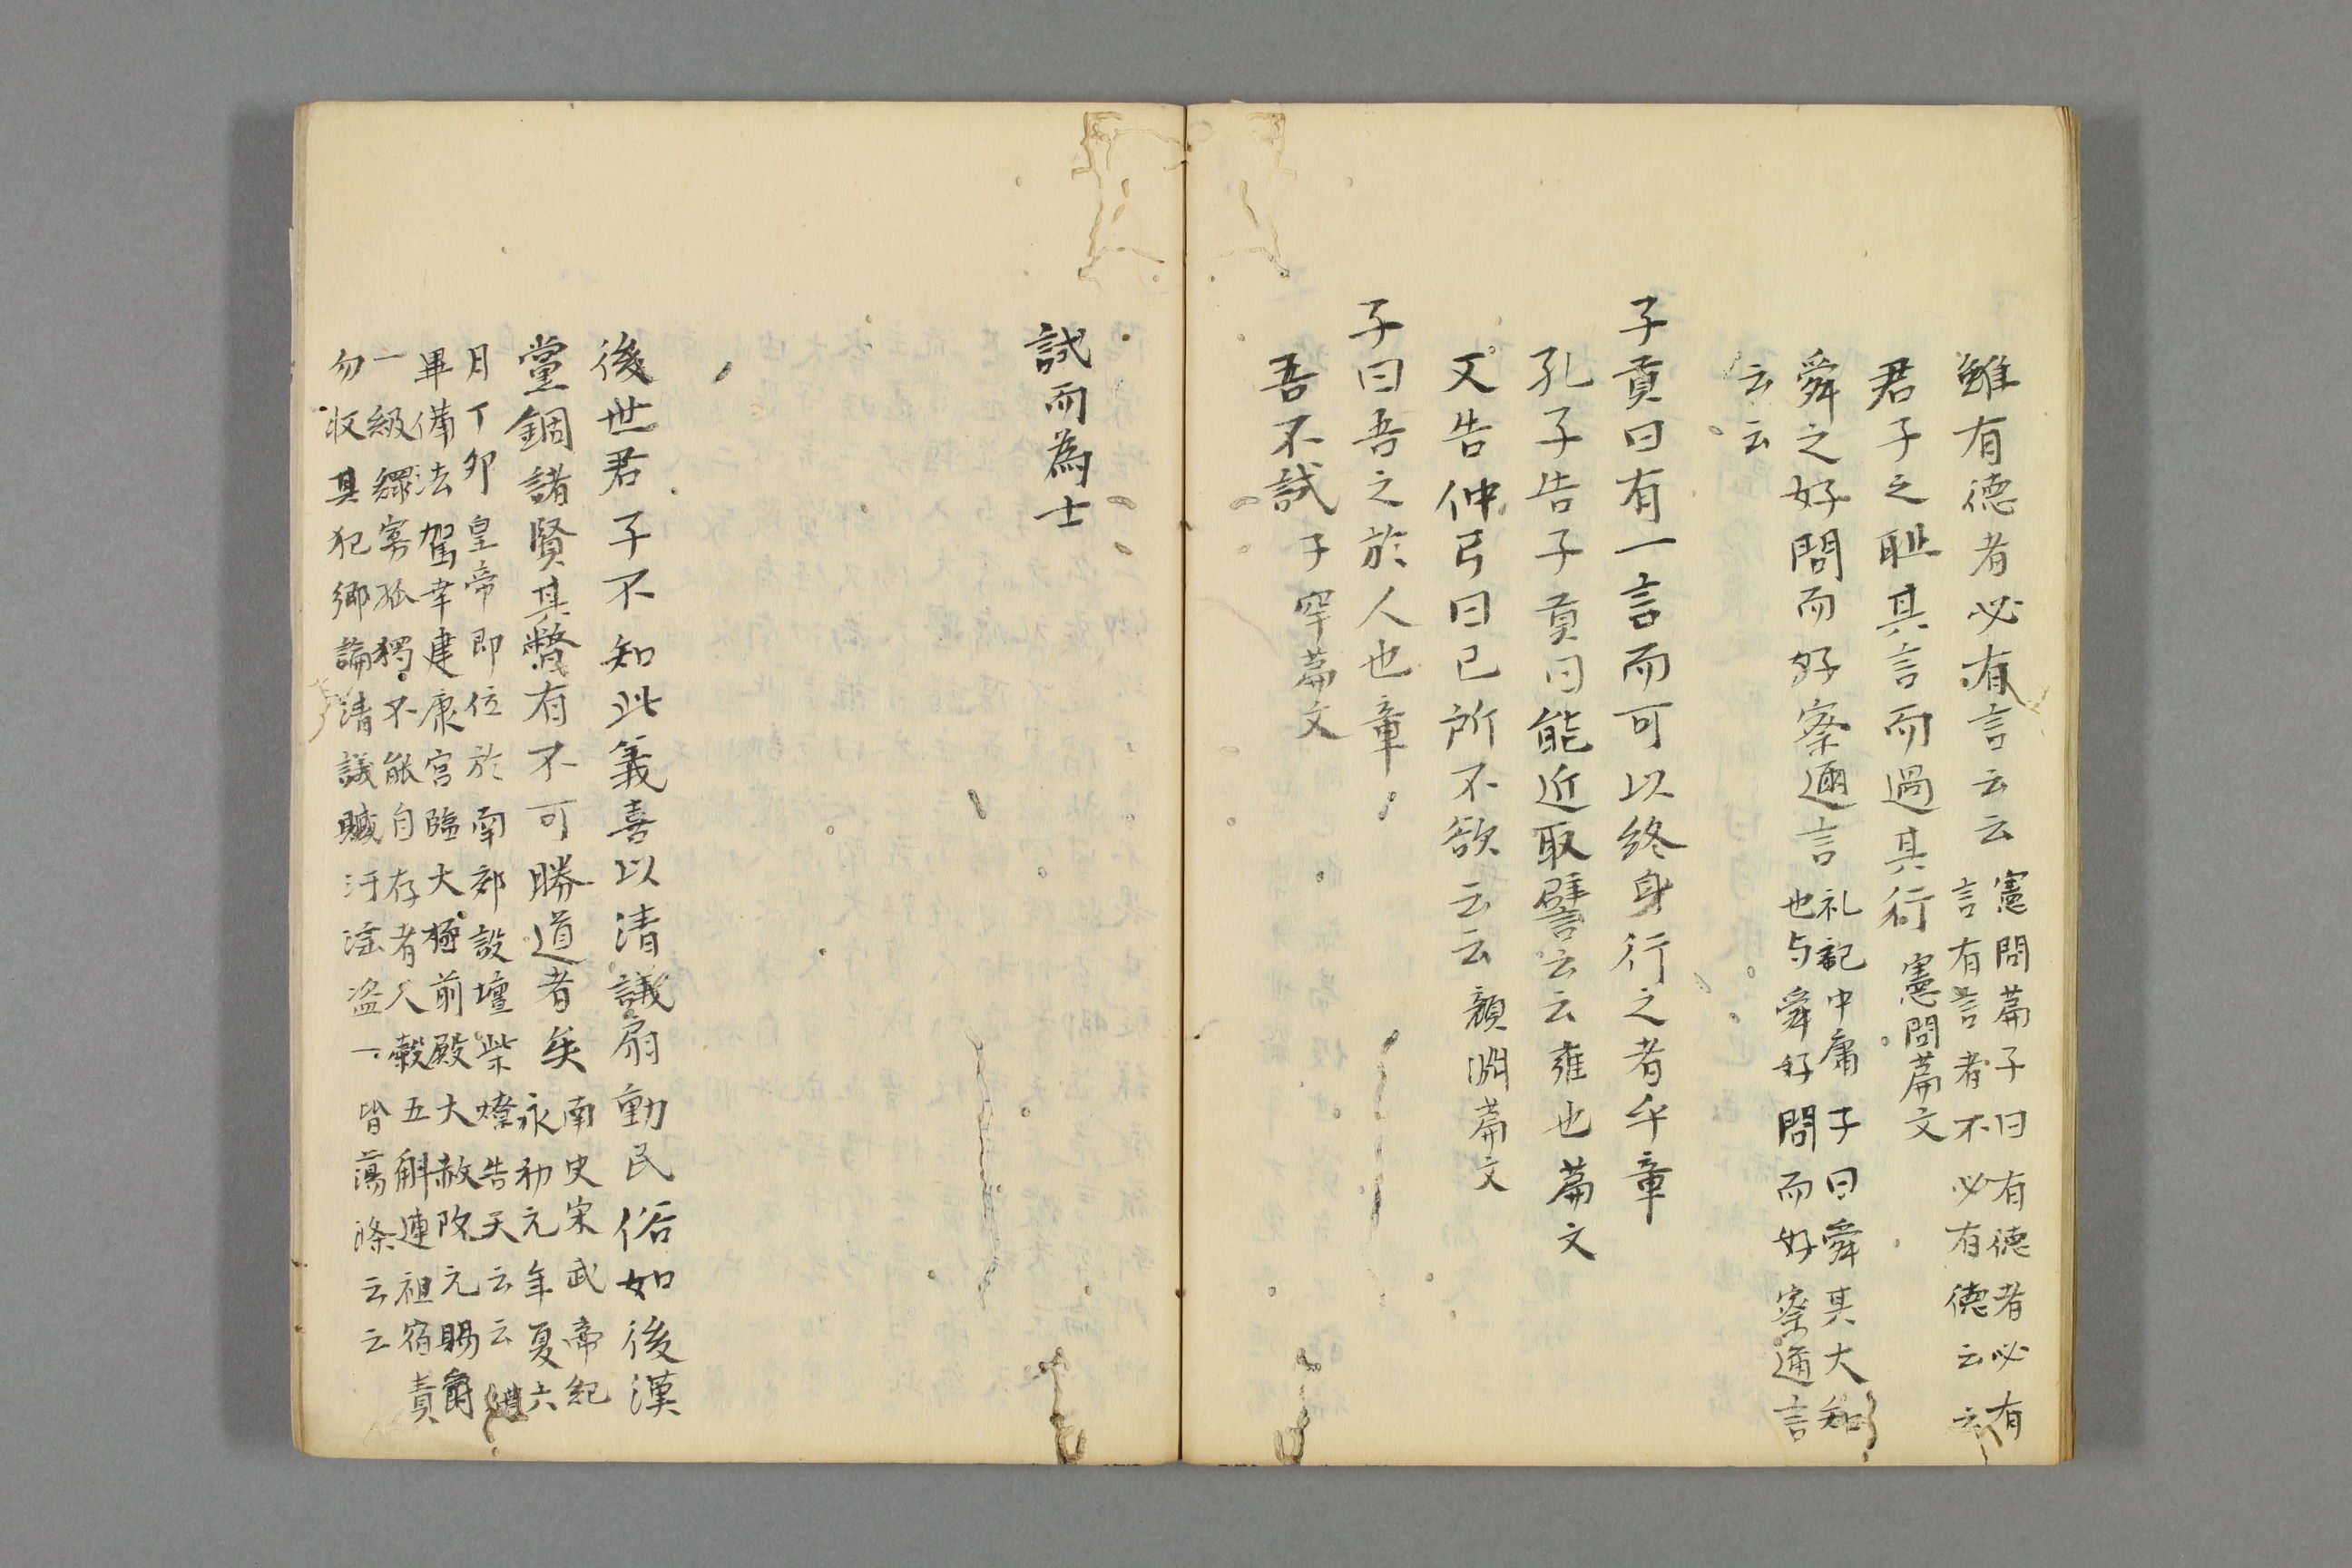 雖有德者必有言云云
憲問篇子曰有德者必有
言有言者不必有德云云
君子之耻其言而過其行
憲問篇文
舜之好問而好察邇言
礼記中庸子曰舜其大知
也与舜好問而好察邇言
云云
子貢曰有一言而可以終身行之者乎章
孔子告子貢曰能近取譬云云雍也篇文
又告仲弓曰已所不欲云云
顏淵篇文
子曰吾之於人也章
吾不試
子罕篇文
試而為士
後世君子不知此義喜以清議扇動民俗如後漢
黨錮諸賢其弊有不可勝道者矣
南史宋武帝紀
永初元年夏六
月丁卯皇帝即位於南郊設壇柴燎告天云云礼
畢備法駕幸建康宮臨大極前殿大赦改元賜爵
一級鰥寡孤獨不能自存者人穀五斛逋租宿責
勿收其犯鄉論清議贓汙淫盗一皆蕩滌云云